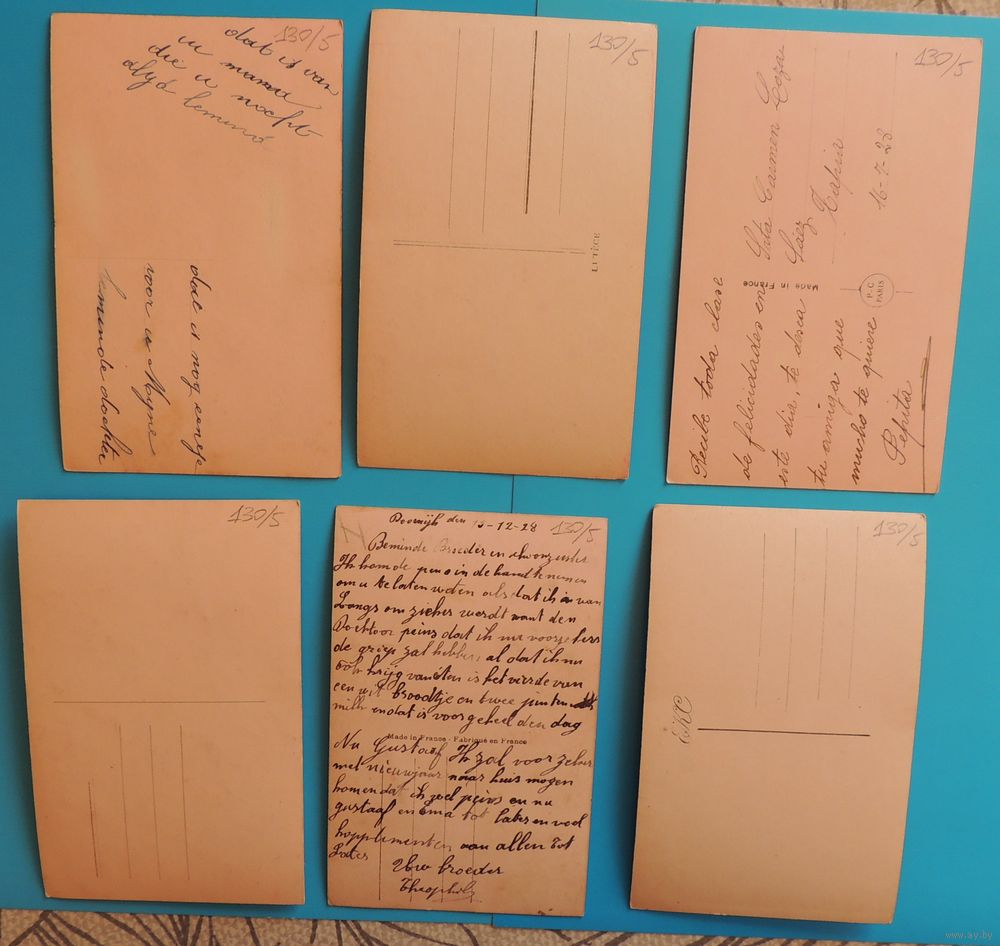 130/5
dat is van
u mama
die u nocht
altyd beminé
dat is nog eentje
voor u Moyne
beminde dochter
130/5
LUTÈCE
130/5
Srta Carmen Coza
Sáez
Tapia
16-7-28
Made in France
P. C.
PARIS
Recibe toda clase
de felicidades en
este dia, te desea
tu amiga que
mucho te quiere
Pepita
130/5
130/5
den 15-12-28
Beminde Broeder en schoonzuster
Ik kom de pen in de hand te nemen
om u te laten weten als dat ik nu van
Langs om zieker werdt want den
Docktoor peins dat ik nu voorzekers
de griep zal hebben, al dat ik nu
ook krijg van eten is het vierde van
een wit broodtje en twee pinten
milk en dat is voor geheel den dag
Made in France - Fabriqué en France
Nu Gustaaf Ik zal voor zeker
met nieuwjaar naar huis mogen
komen dat ik zoel peins en nu
gustaaf en Ema tot later en veel
kopplimenten aan allen tot
Later
Uw broeder
Theophiel
130/5
EKC
www.ay.by